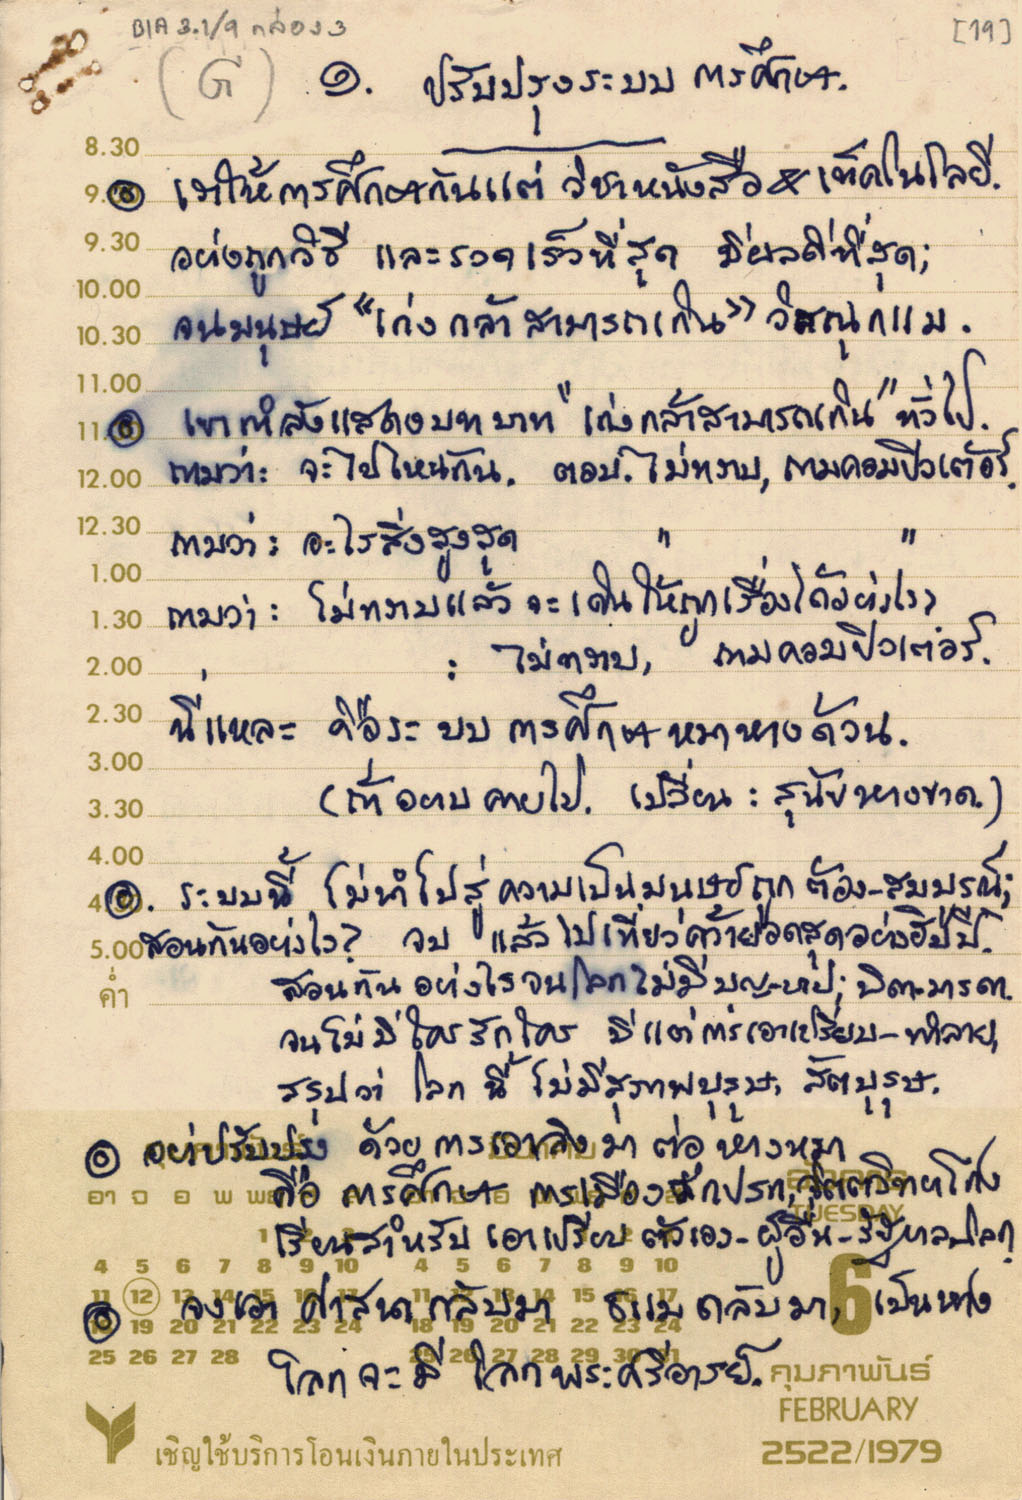 BIA 3.1/9 กล่อง 3 [19]
(ดี) ๑. ปรับปรุงระบบการศึกษา.
8.30
9. เขาให้การศึกษากันแต่ วิชาหนังสือ & เท็คโนโลยี.
9.30 อย่างถูกวิธี และรวดเร็วที่สุด มีผลดีที่สุด;
10.00
10.30 จนมนุษย์ "เก่งกล้าสามารถเกิน"
11.00
11. เขากำลังแสดงบทบาท "เก่งกล้าสามารถเกิน" ทั่วไป.
12.00 ถามว่า: จะไปไหนกัน. ตอบ. ไม่ทราบ, ถามคอมปิวเต้อร์.
12.30 ถามว่า: อะไรสิ่งสูงสุด " "
1.00
1.30 ถามว่า: ไม่ทราบแล้ว จะเดินให้ถูกเรื่องได้อย่างไร?
2.00 : ไม่ทราบ, ถามคอมปิวเต้อร์.
2.30 นี่แหละ คือระบบการศึกษาหมาหางด้วน.
3.00
3.30 (ถ้าหยาบคายไป. เปลี่ยน: สุนัขหางขาด.)
4.00
4. . ระบบนี้ ไม่นำไปสู่ความเป็นมนุษย์ถูกต้อง-สมบูรณ์;
5.00 สอนกันอย่างไร? จบ แล้วไปเที่ยว อย่างฮิปปี้.
ค่ำ สอนกันอย่างไรจนโลกไม่มีบุญ-บาป; บิดา-มารดา.
จนไม่มีใครรักใคร มีแต่การเอาเปรียบ-ทำลาย,
สรุปว่า โลกนี้ ไม่มีสุภาพบุรุษ, สัตบุรุษ.
อย่าปรับปรุง ด้วยการเอา มาต่อหางหมา
คือ การศึกษา การเมือง จิตตวิทยาโกง
เรียนสำหรับ เอาเปรียบตัวเอง-ผู้อื่น-รัฐบาล
จงเอา ศาสนากลับมา ธรรมกลับมา, เป็นทาง
โลกจะมี โลกพระศรีอารย์.
อา จ อ พ พฤ
TUESDAY
1
4 5 6 7 8 9 10 4 5 6 7 8 9 10
11 12 13 14 15 16 17 11 12 13 14 15 16 17
18 19 20 21 22 23 24 18 19 20 21 22 23 24
25 26 27 28 25 26 27 28 29 30 31
6
กุมภาพันธ์
FEBRUARY
2522/1979
เชิญใช้บริการโอนเงินภายในประเทศ